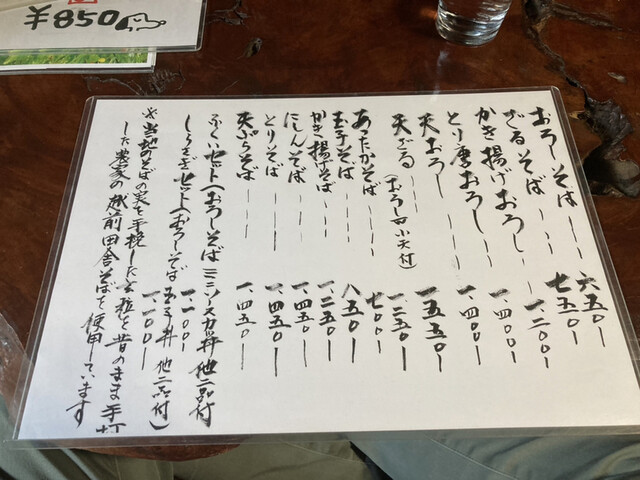 おろしそば ――― 六五〇ー
ざるそば ――― 七五〇ー
かき揚げおろし ―― 一、二〇〇ー
とり唐おろし ―― 一、四〇〇ー
天おろし ――― 一、四〇〇ー
天ざる ――― 一、五五〇ー
(おろし 小天付) 一、二五〇ー
あったかそば ――― 七〇〇ー
玉子そば ――― 八五〇ー
かき揚げそば ―― 一、二五〇ー
にしんそば ――― 一、四五〇ー
とりそば ――― 一、四五〇ー
天ぷらそば ―― 一、四五〇ー
ふくいセット(おろしそば ミニソースカツ丼 他二品付) 一、一〇〇ー
しらさぎセット(おろしそば 玉子丼 他二品付) 一、一〇〇ー
※当地のそばの実を手挽した玄粒を昔のまま手打
した農家の越前田舎そばを使用しています
¥850